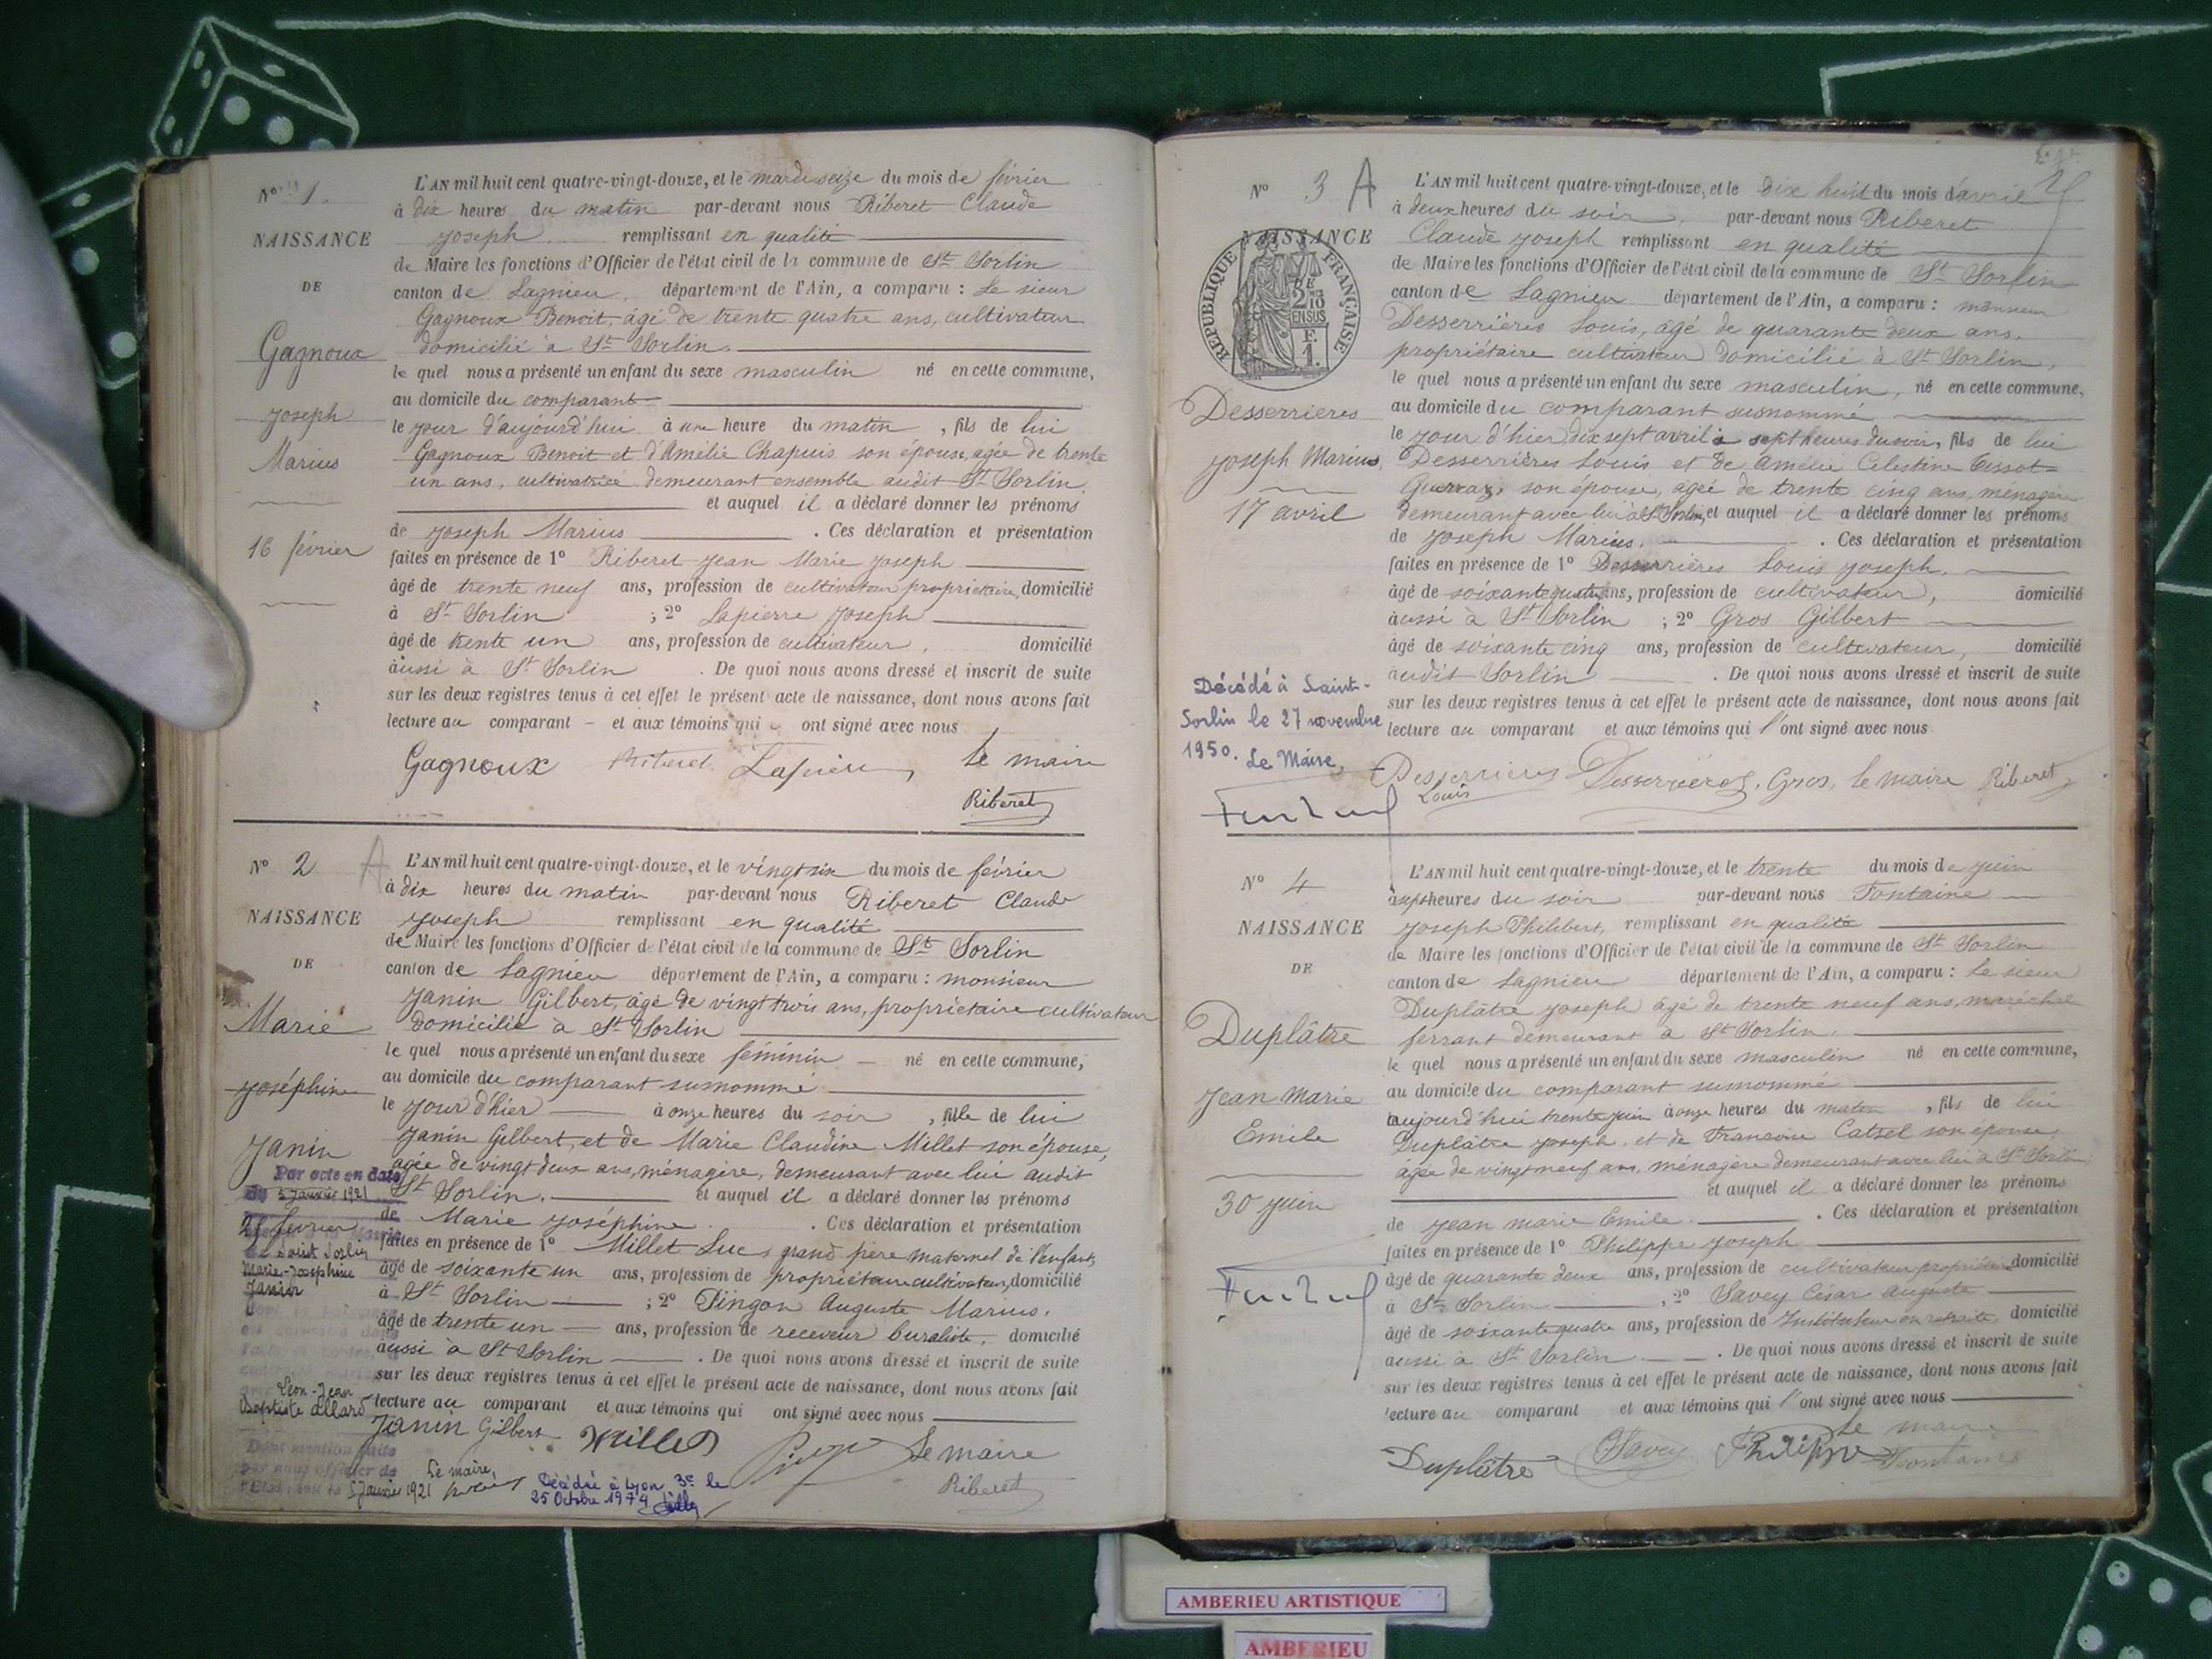 N° 1.
NAISSANCE
DE
Gagnoux
Joseph
Marius
16 février
L'AN mil huit cent quatre-vingt-douze, et le mardi seize du mois de février
à dix heures du matin par-devant nous Riberet Claude
Joseph remplissant en qualité
de Maire les fonctions d'Officier de l'état civil de la commune de St Sorlin
canton de Lagnieu, département de l'Ain, a comparu : Le sieur
Gagnoux Benoit, âgé de trente quatre ans, cultivateur
domicilié à St Sorlin.
le quel nous a présenté un enfant du sexe masculin né en cette commune,
au domicile du comparant
le jour d'aujourd'hui à une heure du matin, fils de lui
Gagnoux Benoit et d'Amélie Chapuis son épouse, agée de trente
un ans, cultivatrice demeurant ensemble audit St Sorlin
et auquel il a déclaré donner les prénoms
de Joseph Marius. Ces déclaration et présentation
faites en présence de 1° Riberet Jean Marie Joseph
âgé de trente neuf ans, profession de cultivateur propriétaire, domicilié
à St Sorlin ; 2° Lapierre Joseph
âgé de trente un ans, profession de cultivateur, domicilié
aussi à St Sorlin. De quoi nous avons dressé et inscrit de suite
sur les deux registres tenus à cet effet le présent acte de naissance, dont nous avons fait
lecture au comparant – et aux témoins qui ont signé avec nous
Gagnoux Riberet Lapierre Le maire
Riberet
N° 2 A
NAISSANCE
DE
Marie
Joséphine
Janin
Par acte en date
du 5 Janvier 1921
25 février
de Saint Sorlin
Marie-Joséphine
Janin
Léon-Jean
Baptiste Allard
Dont mention faite
par nous officier de
5 Janvier 1921 Le maire,
L'AN mil huit cent quatre-vingt-douze, et le vingt six du mois de février
à dix heures du matin par-devant nous Riberet Claude
Joseph remplissant en qualité
de Maire les fonctions d'Officier de l'état civil de la commune de St Sorlin
canton de Lagnieu département de l'Ain, a comparu : monsieur
Janin Gilbert, âgé de vingt trois ans, propriétaire cultivateur
domicilié à St Sorlin
le quel nous a présenté un enfant du sexe féminin – né en cette commune,
au domicile du comparant susnommé
le jour d'hier à onze heures du soir, fille de lui
Janin Gilbert, et de Marie Claudine Millet son épouse,
agée de vingt deux ans, ménagère, demeurant avec lui audit
St Sorlin. et auquel il a déclaré donner les prénoms
de Marie Joséphine. Ces déclaration et présentation
faites en présence de 1° Millet Luc, grand père maternel de l'enfant,
âgé de soixante un ans, profession de propriétaire cultivateur, domicilié
à St Sorlin ; 2° Pingon Auguste Marius.
âgé de trente un ans, profession de receveur buraliste, domicilié
aussi à St Sorlin. De quoi nous avons dressé et inscrit de suite
sur les deux registres tenus à cet effet le présent acte de naissance, dont nous avons fait
lecture au comparant et aux témoins qui ont signé avec nous
Janin Gilbert Millet Le maire
Riberet
Décédée à Lyon 3e le
25 Octobre 1974
N° 3 A
NAISSANCE
RÉPUBLIQUE FRANÇAISE
2/10
EN SUS
F.
1.
Desserrières
Joseph Marius,
17 avril
Décédé à Saint-
Sorlin le 27 novembre
1950. Le Maire,
L'AN mil huit cent quatre-vingt-douze, et le dix huit du mois d'avril
à deux heures du soir, par-devant nous Riberet
Claude Joseph remplissant en qualité
de Maire les fonctions d'Officier de l'état civil de la commune de St Sorlin
canton de Lagnieu département de l'Ain, a comparu : monsieur
Desserrières Louis, âgé de quarante deux ans.
propriétaire cultivateur domicilié à St Sorlin,
le quel nous a présenté un enfant du sexe masculin, né en cette commune,
au domicile du comparant susnommé
le jour d'hier dix sept avril à sept heures du soir, fils de lui
Desserrières Louis et de Amélie Celestine Tissot-
son épouse, agée de trente cinq ans, ménagère
demeurant avec lui à St Sorlin, et auquel il a déclaré donner les prénoms
de Joseph Marius. Ces déclaration et présentation
faites en présence de 1° Desserrières Louis Joseph,
âgé de soixante quatre ans, profession de cultivateur, domicilié
aussi à St Sorlin ; 2° Gros Gilbert
âgé de soixante cinq ans, profession de cultivateur, domicilié
audit Sorlin. De quoi nous avons dressé et inscrit de suite
sur les deux registres tenus à cet effet le présent acte de naissance, dont nous avons fait
lecture au comparant et aux témoins qui l'ont signé avec nous
Desserrières Louis Desserrières, Gros, le maire Riberet
N° 4
NAISSANCE
DE
Duplâtre
Jean Marie
Emile
30 juin
L'AN mil huit cent quatre-vingt-douze, et le trente du mois de juin
à sept heures du soir par-devant nous Fontaine
Joseph Philibert, remplissant en qualité
de Maire les fonctions d'Officier de l'état civil de la commune de St Sorlin
canton de Lagnieu département de l'Ain, a comparu : Le sieur
Duplâtre Joseph âgé de trente neuf ans, maréchal
ferrant demeurant à St Sorlin.
le quel nous a présenté un enfant du sexe masculin né en cette commune,
au domicile du comparant susnommé
aujourd'hui trente juin à onze heures du matin, fils de lui
Duplâtre Joseph, et de Francoise Catsel son épouse,
âgée de vingt neuf ans, ménagère demeurant avec lui à St Sorlin,
et auquel il a déclaré donner les prénoms
de Jean Marie Emile. Ces déclaration et présentation
faites en présence de 1° Philippe Joseph
âgé de quarante deux ans, profession de cultivateur propriétaire domicilié
à St Sorlin, 2° Savey César Auguste
âgé de soixante quatre ans, profession de Instituteur en retraite, domicilié
aussi à St Sorlin. De quoi nous avons dressé et inscrit de suite
sur les deux registres tenus à cet effet le présent acte de naissance, dont nous avons fait
lecture au comparant et aux témoins qui l'ont signé avec nous
Le maire
Duplâtre Savey Philippe Fontaine
AMBERIEU ARTISTIQUE
AMBERIEU